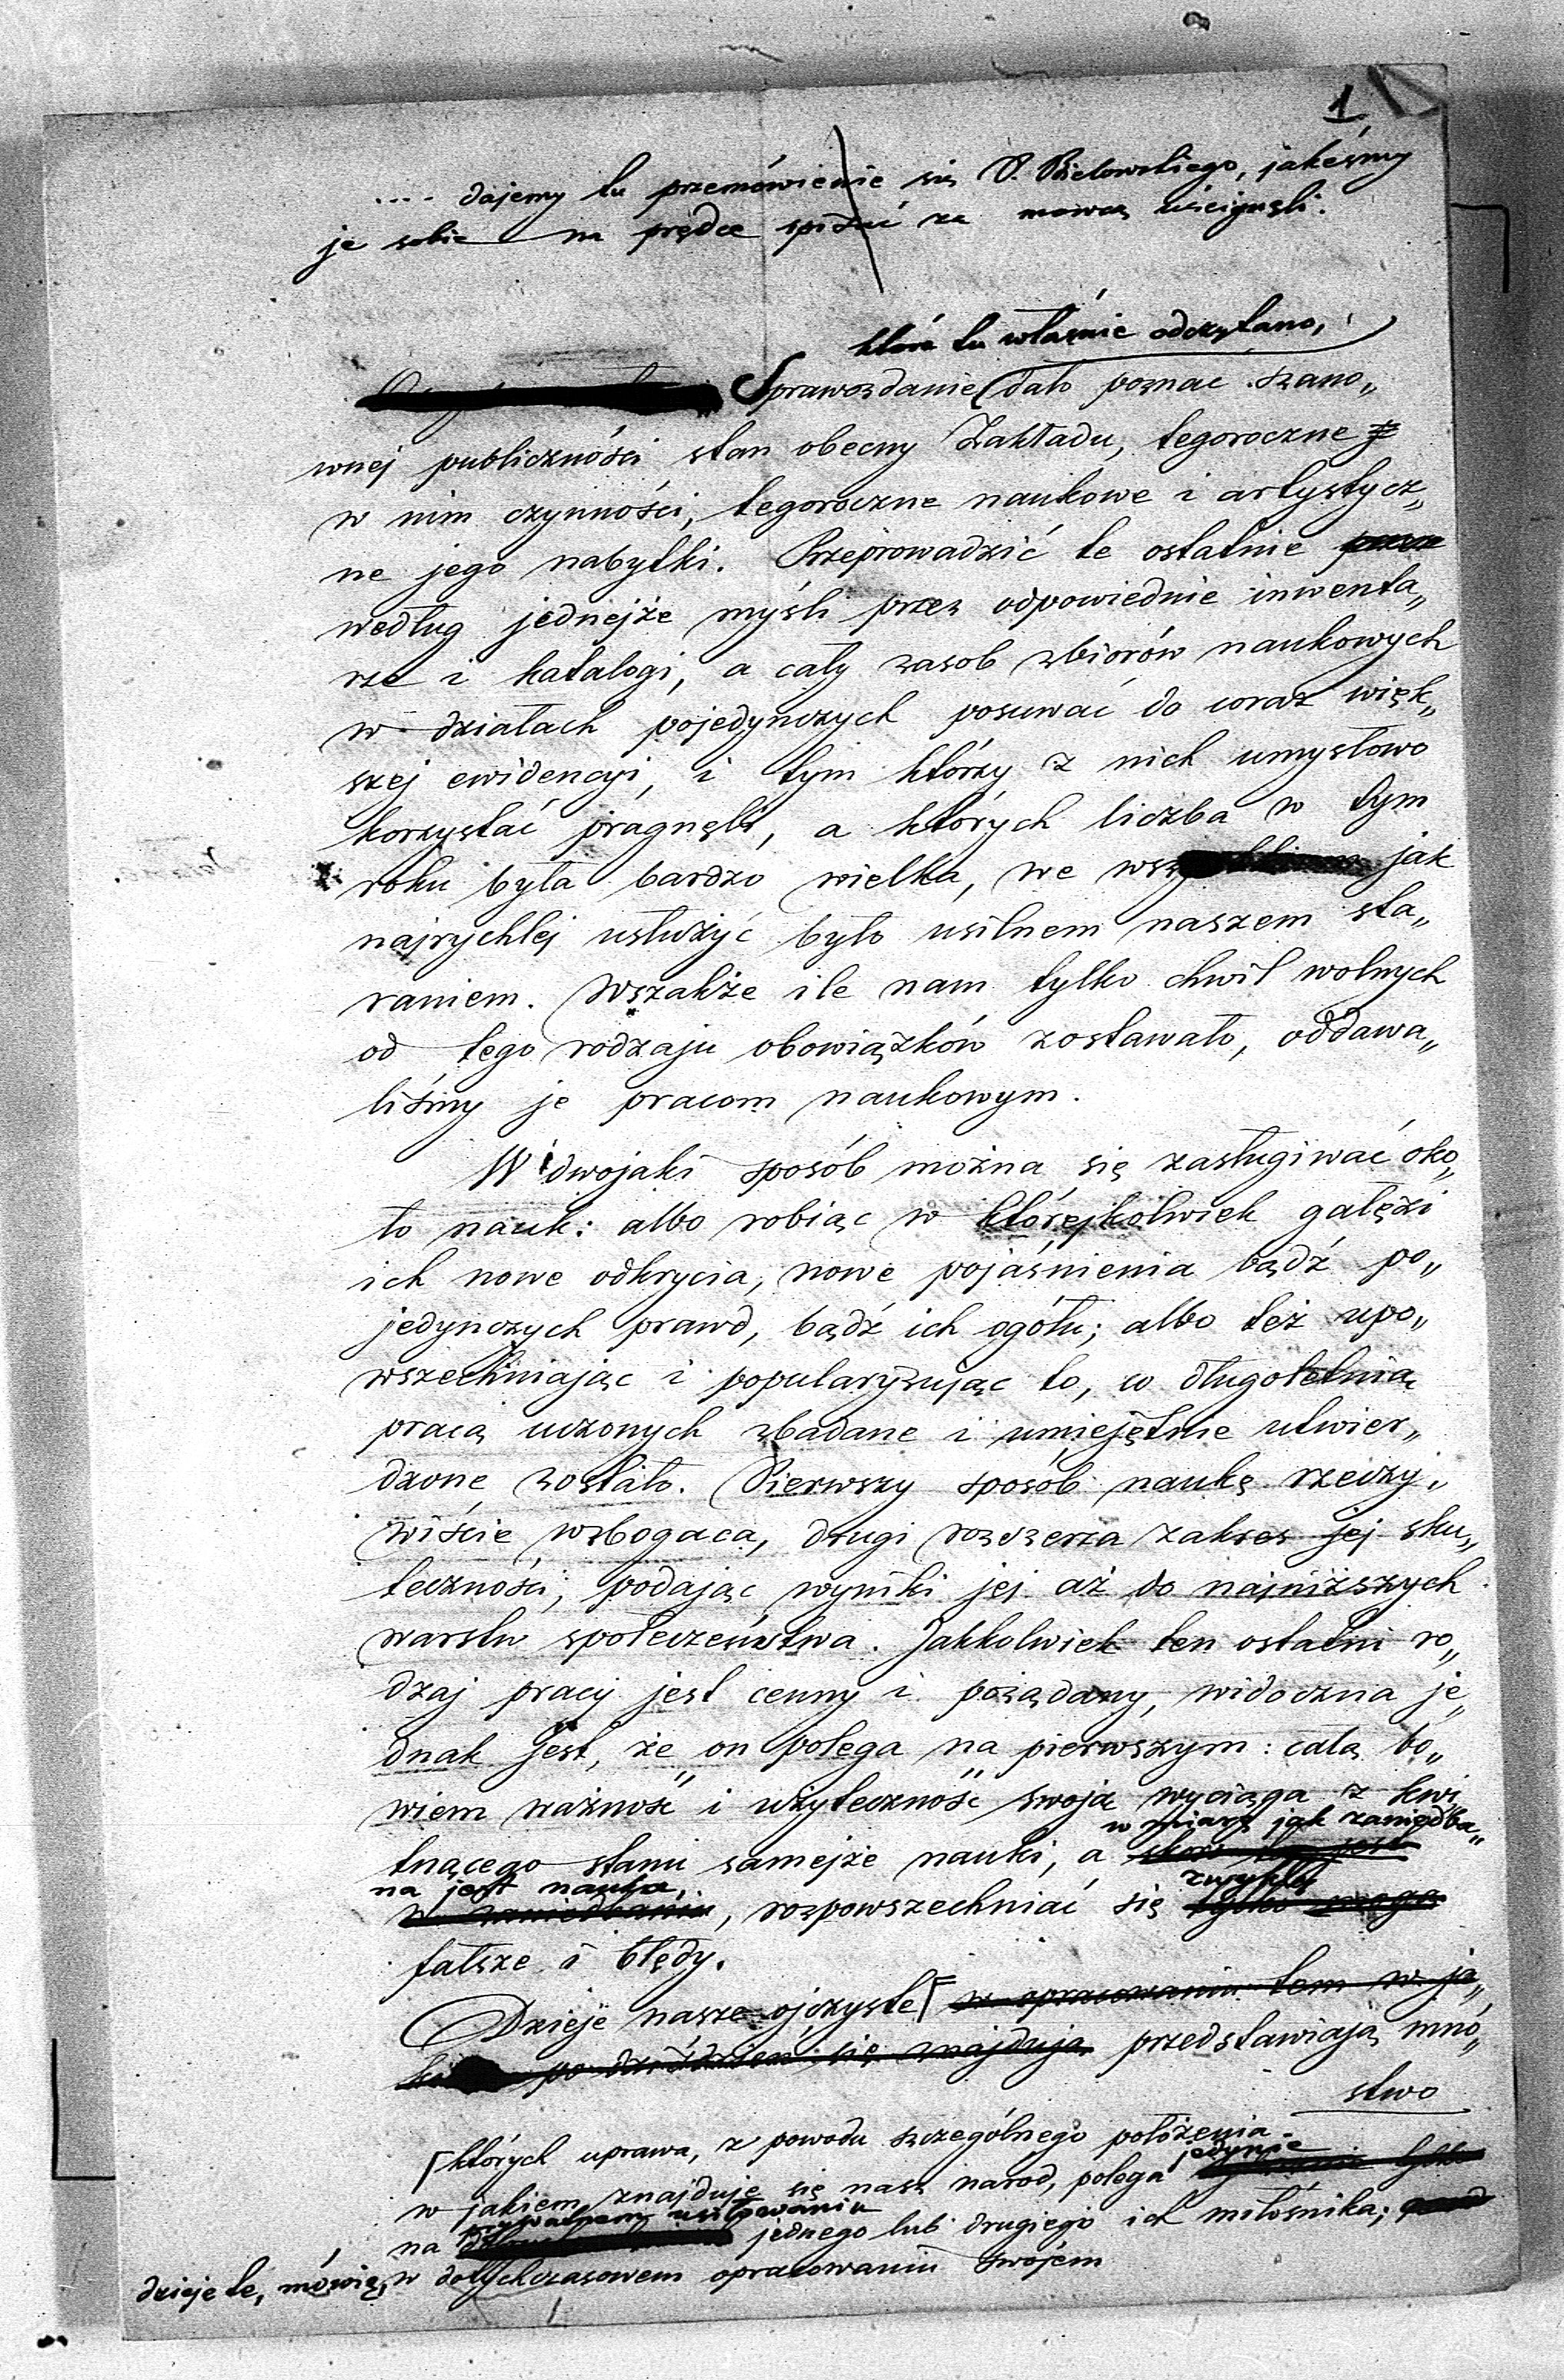 1
.... dajemy tu przemówienie się P. Bielowskiego, jakeśmy
je sobie na prędce spisać za mówcą uścignęli.
które tu właśnie odczytano,
Sprawozdanie dało poznać szano„
wnej publiczności stan obecny Zakładu, tegoroczne
w nim czynności, tegoroczne naukowe i artystycz„
ne jego nabytki. Przeprowadzić te ostatnie
według jednejże myśli przez odpowiednie inwenta„
rze i katalogi, a cały zasob zbiorów naukowych
w działach pojedynczych posuwać do coraz więk„
szej ewidencyi, i tym którzy z nich umysłowo
korzystać pragnęli, a których liczba w tym
roku była bardzo wielka, we wszy jak
najrychlej usłużyć było usilnem naszem sta„
raniem. Wszakże ile nam tylko chwil wolnych
od tego rodzaju obowiązków zostawało, oddawa„
liśmy je pracom naukowym.
W dwojaki sposób można się zasługiwać oko„
ło nauk: albo robiąc w którejkolwiek gałęzi
ich nowe odkrycia, nowe pojaśnienia bądź po„
jedynczych prawd, bądź ich ogółu; albo też upo„
wszechniając i popularyzując to, co długoletnią
pracą uczonych zbadane i umiejętnie utwier„
dzone zostało. Pierwszy sposób naukę rzeczy„
wiście wzbogaca, drugi rozszerza zakres jej sku„
teczności, podając wyniki jej aż do najniższych
warstw społeczeństwa. Jakkolwiek ten ostatni ro„
dzaj pracy jest cenny i pożądany, widoczna je„
dnak jest, że on polega na pierwszym: całą bo„
wiem ważność i użyteczność swoją wyciąga z kwi
w miarę jak zaniedba„
tnącego stanu samejże nauki, a skoro ta jest
na jest nauka, zwykły
w zaniedbaniu, rozpowszechniać się tylko mogą
fałsze i błędy.
Dzieje nasze ojczyste w opracowaniu tem w ja„
po dziś dzień się znajdują przedstawiają mnó„
stwo
których uprawa, z powodu szczególnego położenia
jedynie
w jakiem znajduje się nasz naród, polega tylko
prywatnem usiłowaniu
na jednego lub drugiego ich miłośnika;
dzieje te, mówię, w dotychczasowem opracowaniu swojem